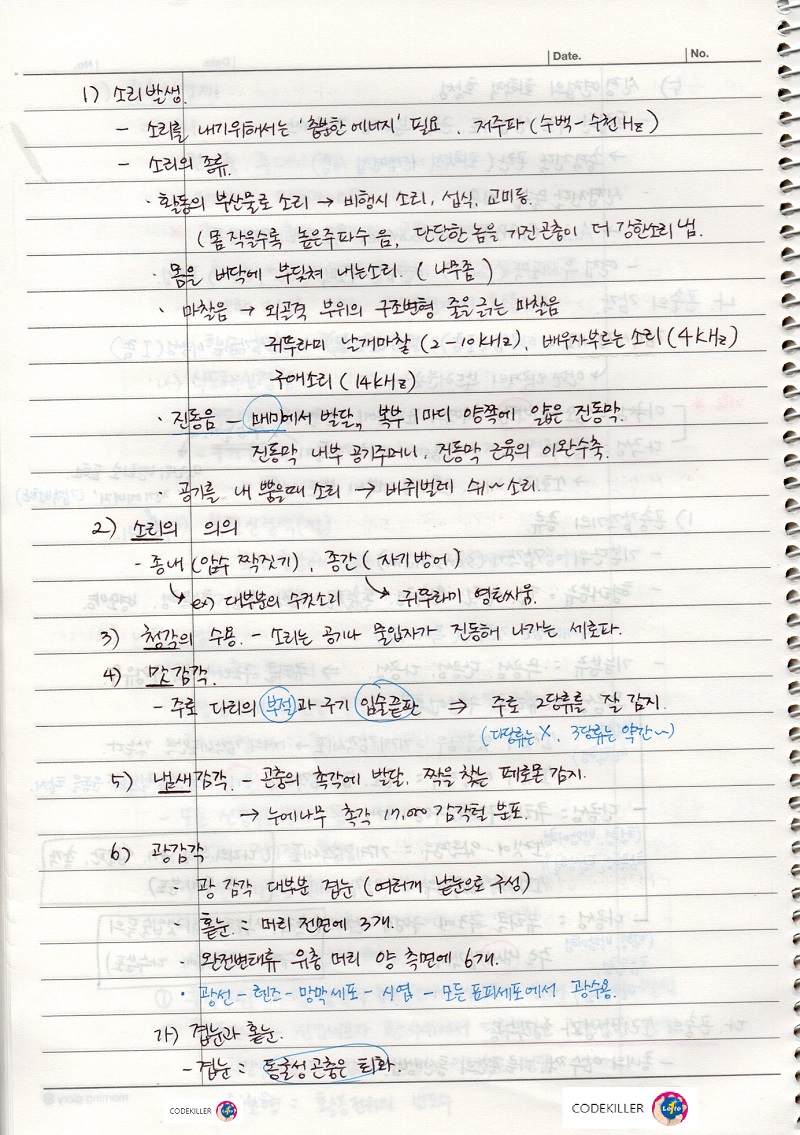 Date.
No.
1) 소리발생.
- 소리를 내기위해서는 '충분한 에너지' 필요. 저주파 (수백-수천Hz)
- 소리의 종류.
· 활동의 부산물로 소리 → 비행시 소리, 섭식, 교미등.
(몸 작을수록 높은주파수 음, 단단한 몸을 가진곤충이 더 강한소리 냄.
· 몸을 바닥에 부딪쳐 내는소리. (나무좀)
· 마찰음 → 외골격 부위의 구조변형 줄을긁는 마찰음
귀뚜라미 날개마찰 (2-10KHz), 배우자부르는 소리 (4KHz)
구애소리 (14KHz)
· 진동음 - 매미에서 발달, 복부 1마디 양쪽에 얇은 진동막.
진동막 내부 공기주머니, 진동막 근육의 이완수축.
· 공기를 내 뿜을때 소리 → 바퀴벌레 쉬~소리.
2) 소리의 의의
- 종내 (암수 짝짓기), 종간 (자기방어)
ex) 대부분의 수컷소리 귀뚜라미 영토싸움.
3) 청각의 수용. - 소리는 공기나 물입자가 진동해 나가는 세로파.
4) 맛감각.
- 주로 다리의 부절과 구기 입술끝판 ⇒ 주로 2당류를 잘 감지.
(다당류는 X, 3당류는 약간~)
5) 냄새감각. - 곤충의 촉각에 발달. 짝을 찾는 페로몬 감지.
→ 누에나무 촉각 17,000 감각털 분포.
6) 광감각
- 광 감각 대부분 겹눈 (여러개 낱눈으로 구성)
- 홑눈 : 머리 전면에 3개.
- 완전변태류 유충 머리 양 측면에 6개.
· 광선 - 렌즈 - 망막세포 - 시엽 - 모든 표피세포에서 광수용.
가) 겹눈과 홑눈.
- 겹눈 : 동굴성곤충은 퇴화.
CODEKILLER
Lotto
CODEKILLER
Lotto